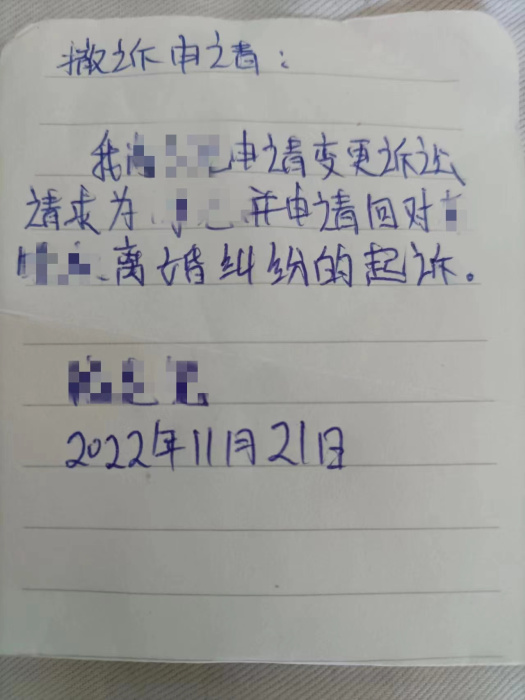 撤诉申请：
我 申请变更诉讼
请求为 并申请回对
离婚纠纷的起诉。
2022年11月21日